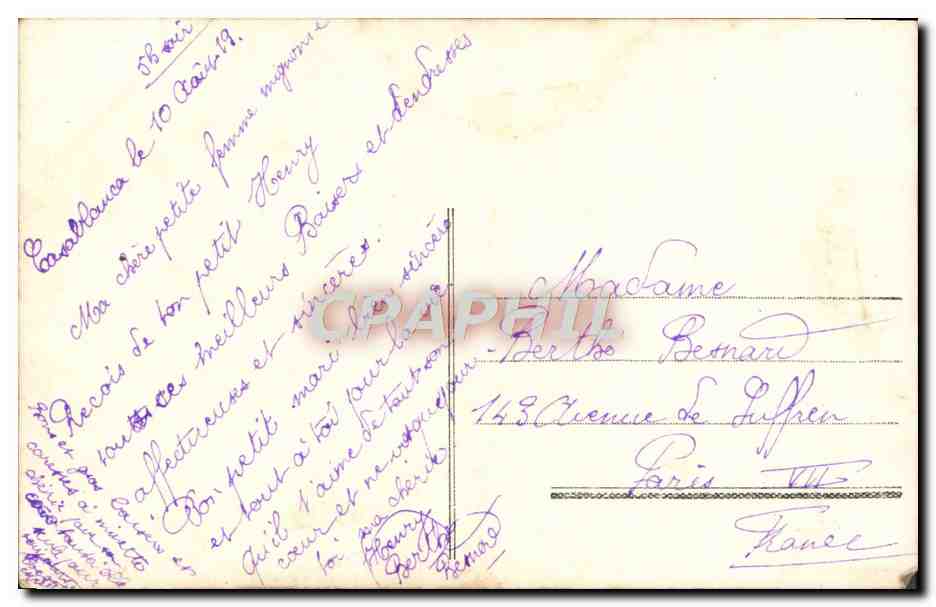 5h soir
Casablanca le 10 Août 19.
Ma chère petite femme mignonne
Recois de ton petit Henry
tous ces meilleurs Baisers et tendresses
affectueuses et sincères.
Ton petit mari bien sincère
et tout à toi pour la vie
qu'il t'aime de tout son
cœur et ne vit que pour
toi sa chérie
Henry
Berthe
Besnard
Bons et gros baisers et
caresses à minette
chérie
CPAPHIL
Madame
Berthe Besnard
143 Avenue de Suffren
Paris VII
France